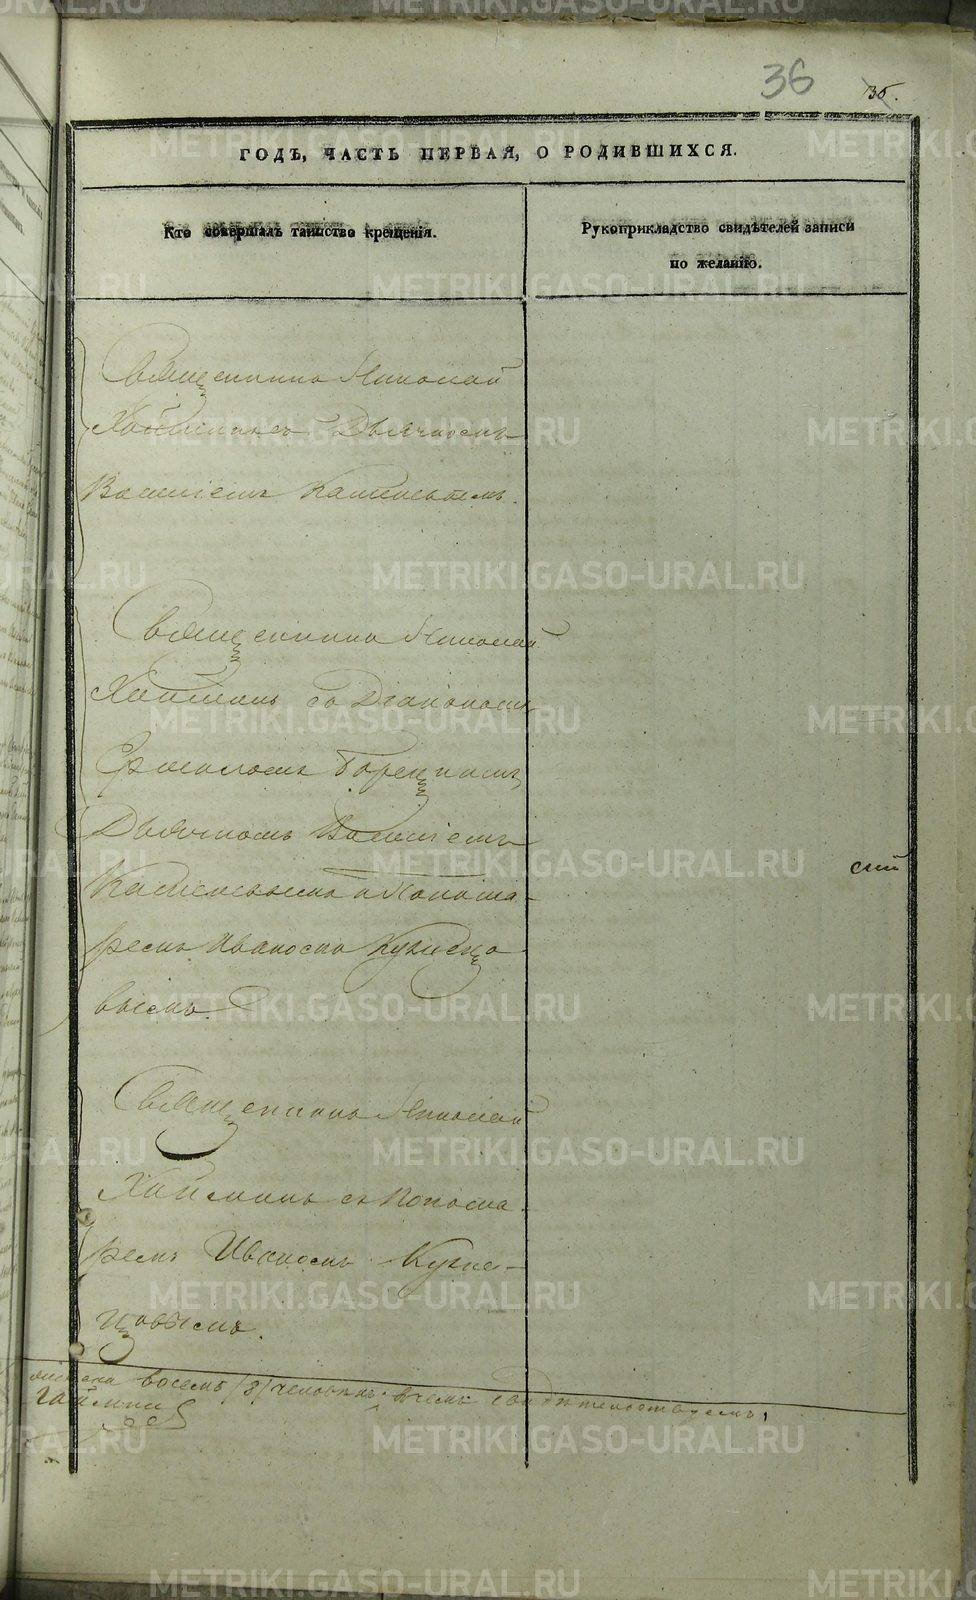 36
36.
ГОДЪ, ЧАСТЬ ПЕРВАЯ, О РОДИВШИХСЯ.
Кто совершалъ таинство крещенія.
Рукоприкладство свидѣтелей записи
по желанію.
Священникъ Николай
Дьячкомъ
Василіемъ
Священникъ Николай
Хайминъ съ Діакономъ
Ермолаемъ
Дьячкомъ Василіемъ
и Понома-
ремъ Иваномъ Кузнецо-
вымъ.
Священникъ Николай
Хайминъ съ Понома-
ремъ Иваномъ Кузне-
цовымъ.
восемь (8) человѣкъ, въ чемъ свидѣтельствуемъ,
METRIKI.GASO-URAL.RU